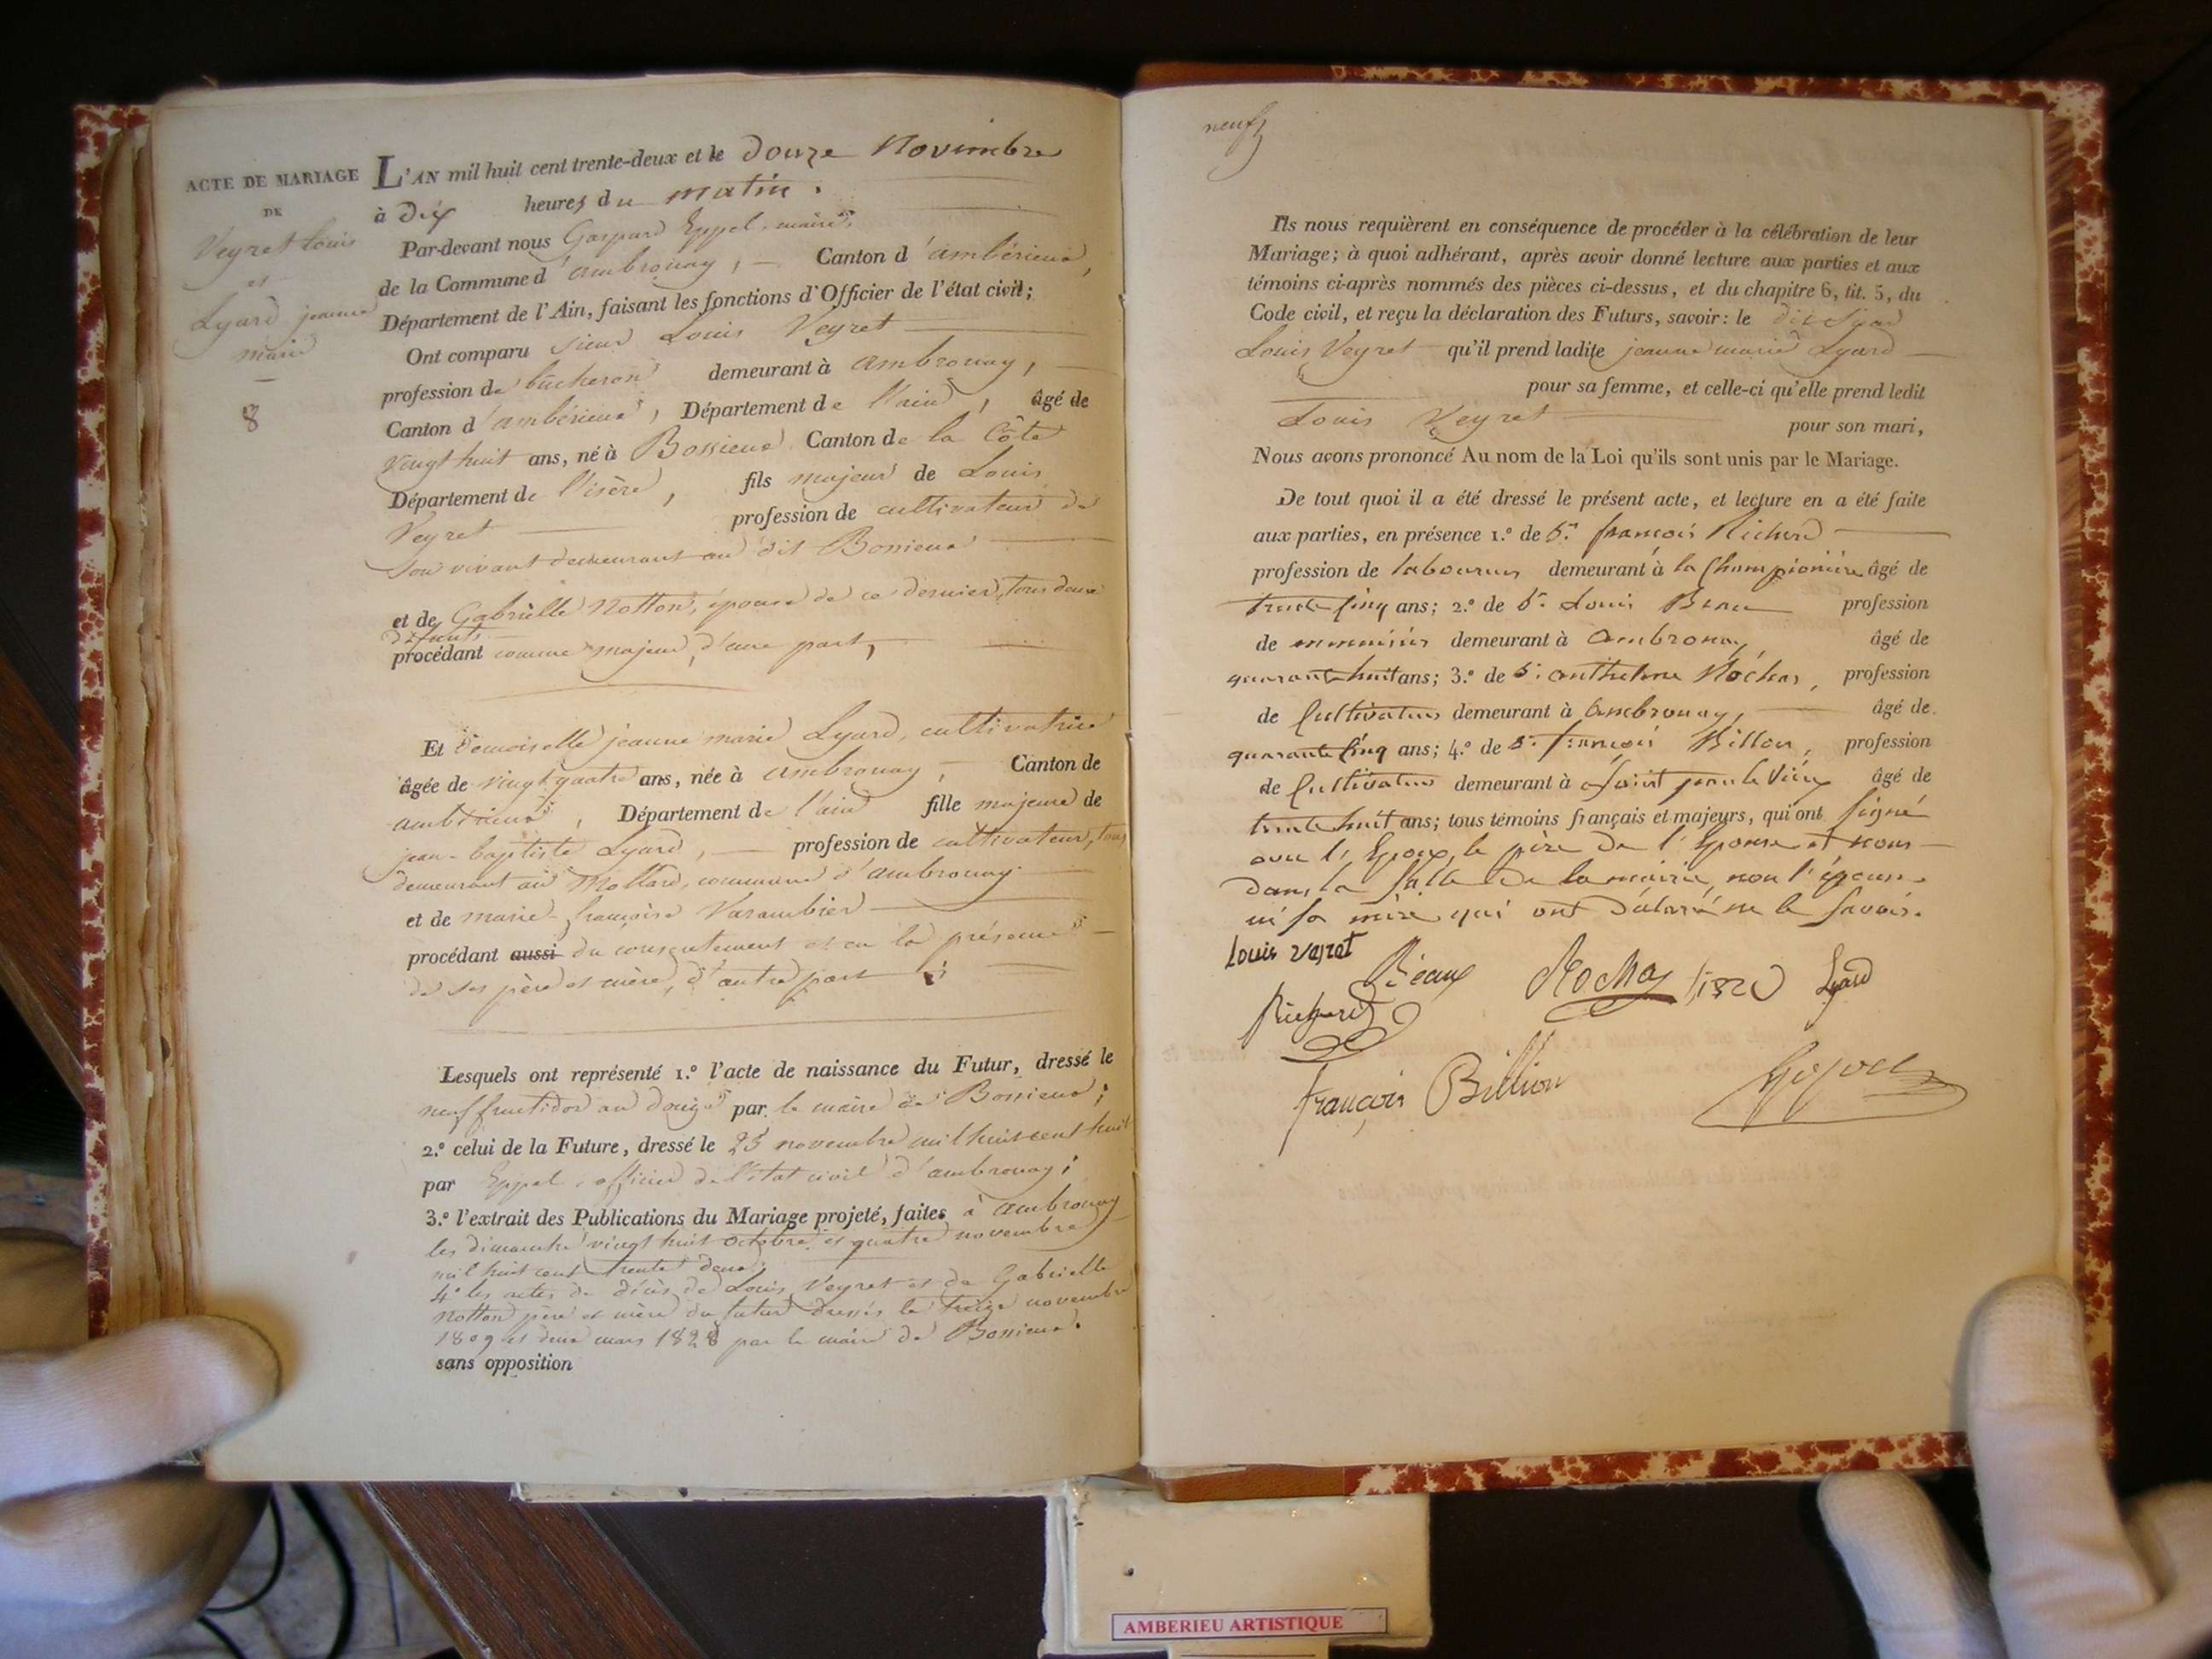 ACTE DE MARIAGE
DE
Veyret Louis
et
Lyard jeanne
marie
8
L'AN mil huit cent trente-deux et le douze Novembre
à dix heures du matin.
Par-devant nous Gaspard Eppel, maire
de la Commune d'ambronay, Canton d'ambérieux,
Département de l'Ain, faisant les fonctions d'Officier de l'état civil;
Ont comparu sieur Louis Veyret
profession de bûcheron demeurant à ambronay,
Canton d'ambérieux, Département de l'ain, âgé de
vingt huit ans, né à Bossieux Canton de la Côte
Département de l'isère, fils majeur de Louis
Veyret profession de cultivateur de
son vivant demeurant au dit Bossieux
et de Gabrielle Notton, épouse de ce dernier, tous deux
défunts
procédant comme majeur, d'une part,
Et demoiselle jeanne marie Lyard, cultivatrice
âgée de vingt quatre ans, née à ambronay, Canton de
ambérieux, Département de l'ain fille majeure de
jean-baptiste Lyard, profession de cultivateur, tous
demeurant au Mollard, commune d'ambronay
et de marie-françoise Varambier
procédant aussi du consentement et en la présence
de ses père et mère, d'autre part
Lesquels ont représenté 1.º l'acte de naissance du Futur, dressé le
neuf fructidor an douze par le maire de Bossieux;
2.º celui de la Future, dressé le 25 novembre mil huit cent huit
par Eppel, officier de l'état civil d'ambronay;
3.º l'extrait des Publications du Mariage projeté, faites à ambronay
les dimanche vingt huit octobre et quatre novembre
mil huit cent trente deux;
4º les actes de décès de Louis Veyret et de Gabrielle
Notton père et mère du futur dressés le treize novembre
1809 et deux mars 1828 par le maire de Bossieux.
sans opposition
neuf
Ils nous requièrent en conséquence de procéder à la célébration de leur
Mariage; à quoi adhérant, après avoir donné lecture aux parties et aux
témoins ci-après nommés des pièces ci-dessus, et du chapitre 6, tit. 5, du
Code civil, et reçu la déclaration des Futurs, savoir: le dit
Louis Veyret qu'il prend ladite jeanne marie Lyard
pour sa femme, et celle-ci qu'elle prend ledit
Louis Veyret pour son mari,
Nous avons prononcé Au nom de la Loi qu'ils sont unis par le Mariage.
De tout quoi il a été dressé le présent acte, et lecture en a été faite
aux parties, en présence 1.º de Sr. françois Richard
profession de laboureur demeurant à la Championière âgé de
trente cinq ans; 2.º de Sr. Louis Beau profession
de menuisier demeurant à ambronay âgé de
quarante huit ans; 3.º de Sr. anthelme Rochas, profession
de Cultivateur demeurant à Ambronay, âgé de
quarante cinq ans; 4.º de Sr. françois Billon, profession
de Cultivateur demeurant à Saint jean le Vieux âgé de
trente huit ans; tous témoins français et majeurs, qui ont signé
avec l'Epoux, le père de l'Epouse et nous
dans la salle de la mairie, non l'épouse
ni sa mère qui ont déclaré ne le savoir.
Louis veyret
Béaux Rochas Lyard
Richard
françois Billion